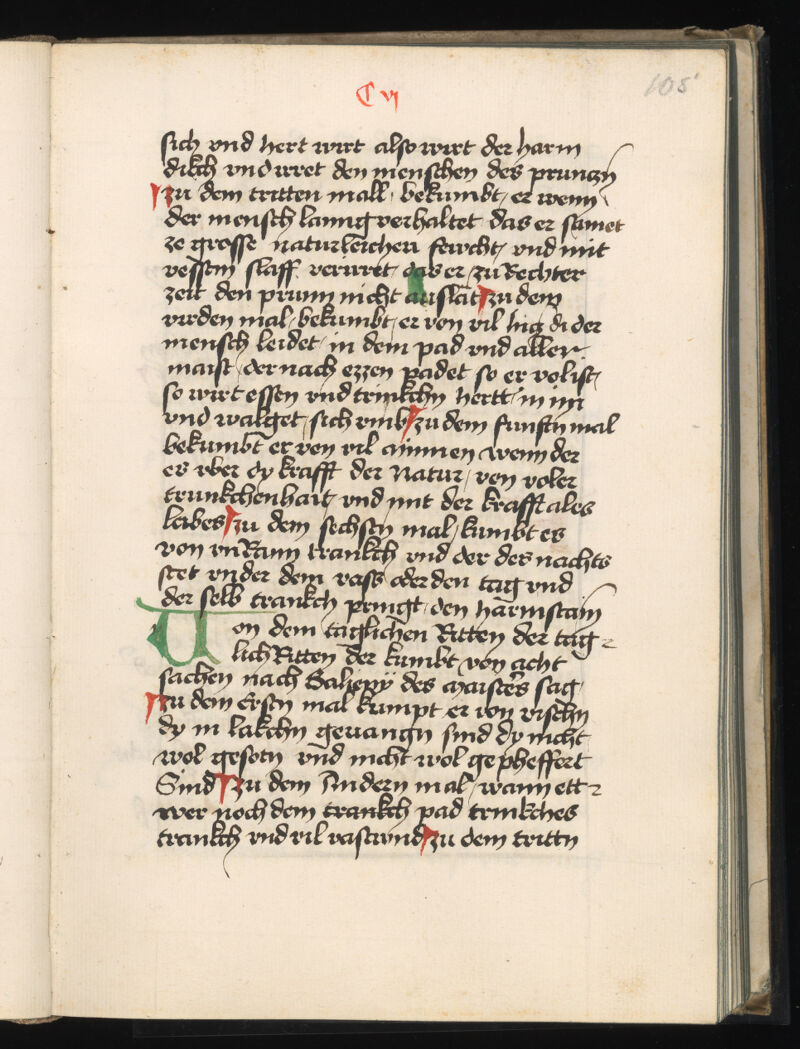 C vj
105
sich vnd hert wirt also wirt der harm
dikch vnd irret den menschen des prunczn
zu dem tritten mall bekumbt er wenn
der mensch lanng verhaltet das er samet
ze grosse naturleichew fewcht vnd mit
vessem slaff verirret das er zu Rechter
zeit den prunn nicht auslat zu dem
virden mal bekumbt er von vil hicz di der
mensch leidet in dem pad vnd aller
maist der nach ezzen padet so er vol ist
so wirt essen vnd trinkchn hertt in im
vnd walget sich vmb zu dem funftn mal
bekumbt er von vil mynnen wenn der
es vber dy krafft der Natur von voler
trunkchenhait vnd mit der krafft ales
leibes zu dem sechsten mal kumbt es
von vnRann trankch vnd der des nachts
stet vnder dem vass oder den tag vnd
der selb trankch pringt den harmstain
Von dem taglichen Ritten der tag
lich Ritten der kumbt von acht
sachen nach des maisters sag
zu dem Ersten mal kumpt er von vischn
dy in lakchn geuangn sind dy nicht
wol gesotn vnd nicht wol gepheffert
Sind zu dem Andern mal wann ett
wer noch dem trankch pad trinkches
trankch vnd vil zu dem trittn